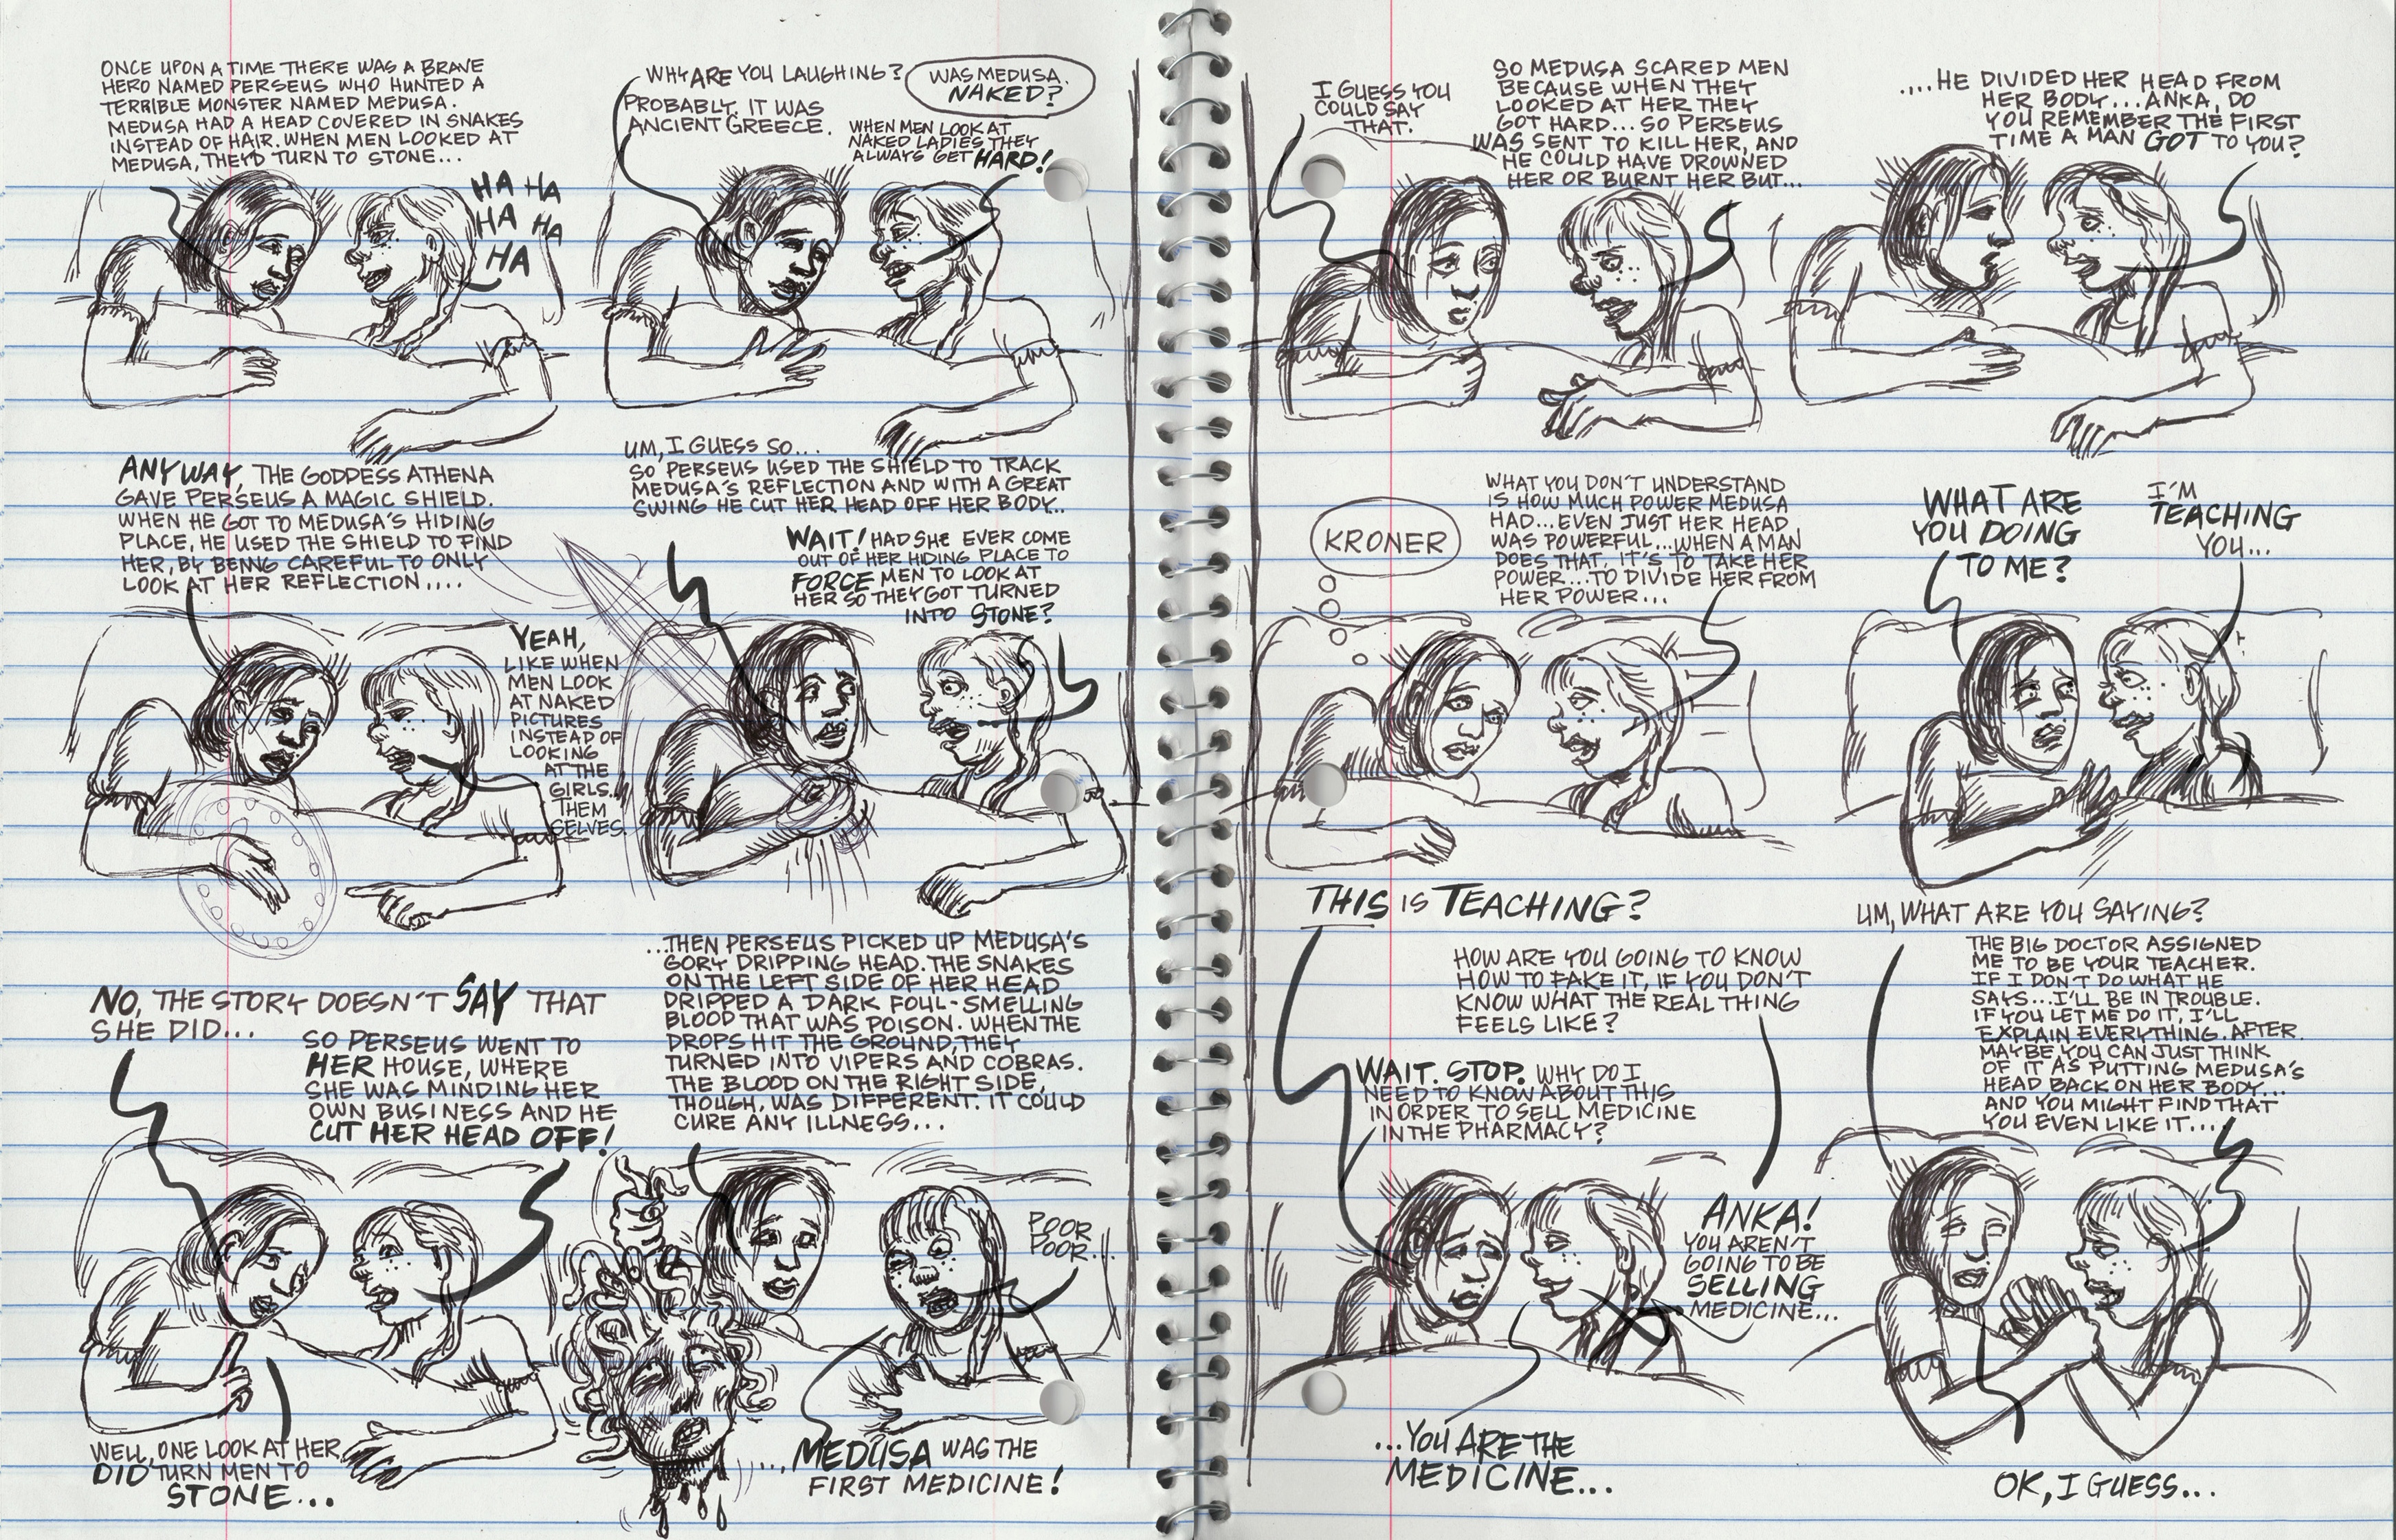 ONCE UPON A TIME THERE WAS A BRAVE
HERO NAMED PERSEUS WHO HUNTED A
TERRIBLE MONSTER NAMED MEDUSA.
MEDUSA HAD A HEAD COVERED IN SNAKES
INSTEAD OF HAIR. WHEN MEN LOOKED AT
MEDUSA, THEY'D TURN TO STONE...
HA HA
HA HA
HA
WHY ARE YOU LAUGHING?
WAS MEDUSA
NAKED?
PROBABLY. IT WAS
ANCIENT GREECE.
WHEN MEN LOOK AT
NAKED LADIES THEY
ALWAYS GET HARD!
ANYWAY, THE GODDESS ATHENA
GAVE PERSEUS A MAGIC SHIELD.
WHEN HE GOT TO MEDUSA'S HIDING
PLACE, HE USED THE SHIELD TO FIND
HER, BY BEING CAREFUL TO ONLY
LOOK AT HER REFLECTION....
YEAH,
LIKE WHEN
MEN LOOK
AT NAKED
PICTURES
INSTEAD OF
LOOKING
AT THE
GIRLS..
THEM
SELVES.
UM, I GUESS SO...
SO PERSEUS USED THE SHIELD TO TRACK
MEDUSA'S REFLECTION AND WITH A GREAT
SWING HE CUT HER HEAD OFF HER BODY...
WAIT! HAD SHE EVER COME
OUT OF HER HIDING PLACE TO
FORCE MEN TO LOOK AT
HER SO THEY GOT TURNED
INTO STONE?
NO, THE STORY DOESN'T SAY THAT
SHE DID...
SO PERSEUS WENT TO
HER HOUSE, WHERE
SHE WAS MINDING HER
OWN BUSINESS AND HE
CUT HER HEAD OFF!
WELL, ONE LOOK AT HER
DID TURN MEN TO
STONE...
...THEN PERSEUS PICKED UP MEDUSA'S
GORY DRIPPING HEAD. THE SNAKES
ON THE LEFT SIDE OF HER HEAD
DRIPPED A DARK FOUL-SMELLING
BLOOD THAT WAS POISON. WHEN THE
DROPS HIT THE GROUND, THEY
TURNED INTO VIPERS AND COBRAS.
THE BLOOD ON THE RIGHT SIDE,
THOUGH, WAS DIFFERENT. IT COULD
CURE ANY ILLNESS...
POOR
POOR...
...MEDUSA WAS THE
FIRST MEDICINE!
I GUESS YOU
COULD SAY
THAT.
SO MEDUSA SCARED MEN
BECAUSE WHEN THEY
LOOKED AT HER THEY
GOT HARD... SO PERSEUS
WAS SENT TO KILL HER, AND
HE COULD HAVE DROWNED
HER OR BURNT HER BUT...
....HE DIVIDED HER HEAD FROM
HER BODY...ANKA, DO
YOU REMEMBER THE FIRST
TIME A MAN GOT TO YOU?
KRONER
WHAT YOU DON'T UNDERSTAND
IS HOW MUCH POWER MEDUSA
HAD...EVEN JUST HER HEAD
WAS POWERFUL...WHEN A MAN
DOES THAT, IT'S TO TAKE HER
POWER....TO DIVIDE HER FROM
HER POWER...
WHAT ARE
YOU DOING
TO ME?
I'M
TEACHING
YOU...
THIS IS TEACHING?
HOW ARE YOU GOING TO KNOW
HOW TO FAKE IT, IF YOU DON'T
KNOW WHAT THE REAL THING
FEELS LIKE?
WAIT. STOP. WHY DO I
NEED TO KNOW ABOUT THIS
IN ORDER TO SELL MEDICINE
IN THE PHARMACY?
ANKA!
YOU AREN'T
GOING TO BE
SELLING
MEDICINE...
...YOU ARE THE
MEDICINE...
UM, WHAT ARE YOU SAYING?
THE BIG DOCTOR ASSIGNED
ME TO BE YOUR TEACHER.
IF I DON'T DO WHAT HE
SAYS...I'LL BE IN TROUBLE.
IF YOU LET ME DO IT, I'LL
EXPLAIN EVERYTHING. AFTER.
MAYBE, YOU CAN JUST THINK
OF IT AS PUTTING MEDUSA'S
HEAD BACK ON HER BODY...
AND YOU MIGHT FIND THAT
YOU EVEN LIKE IT....
OK, I GUESS...